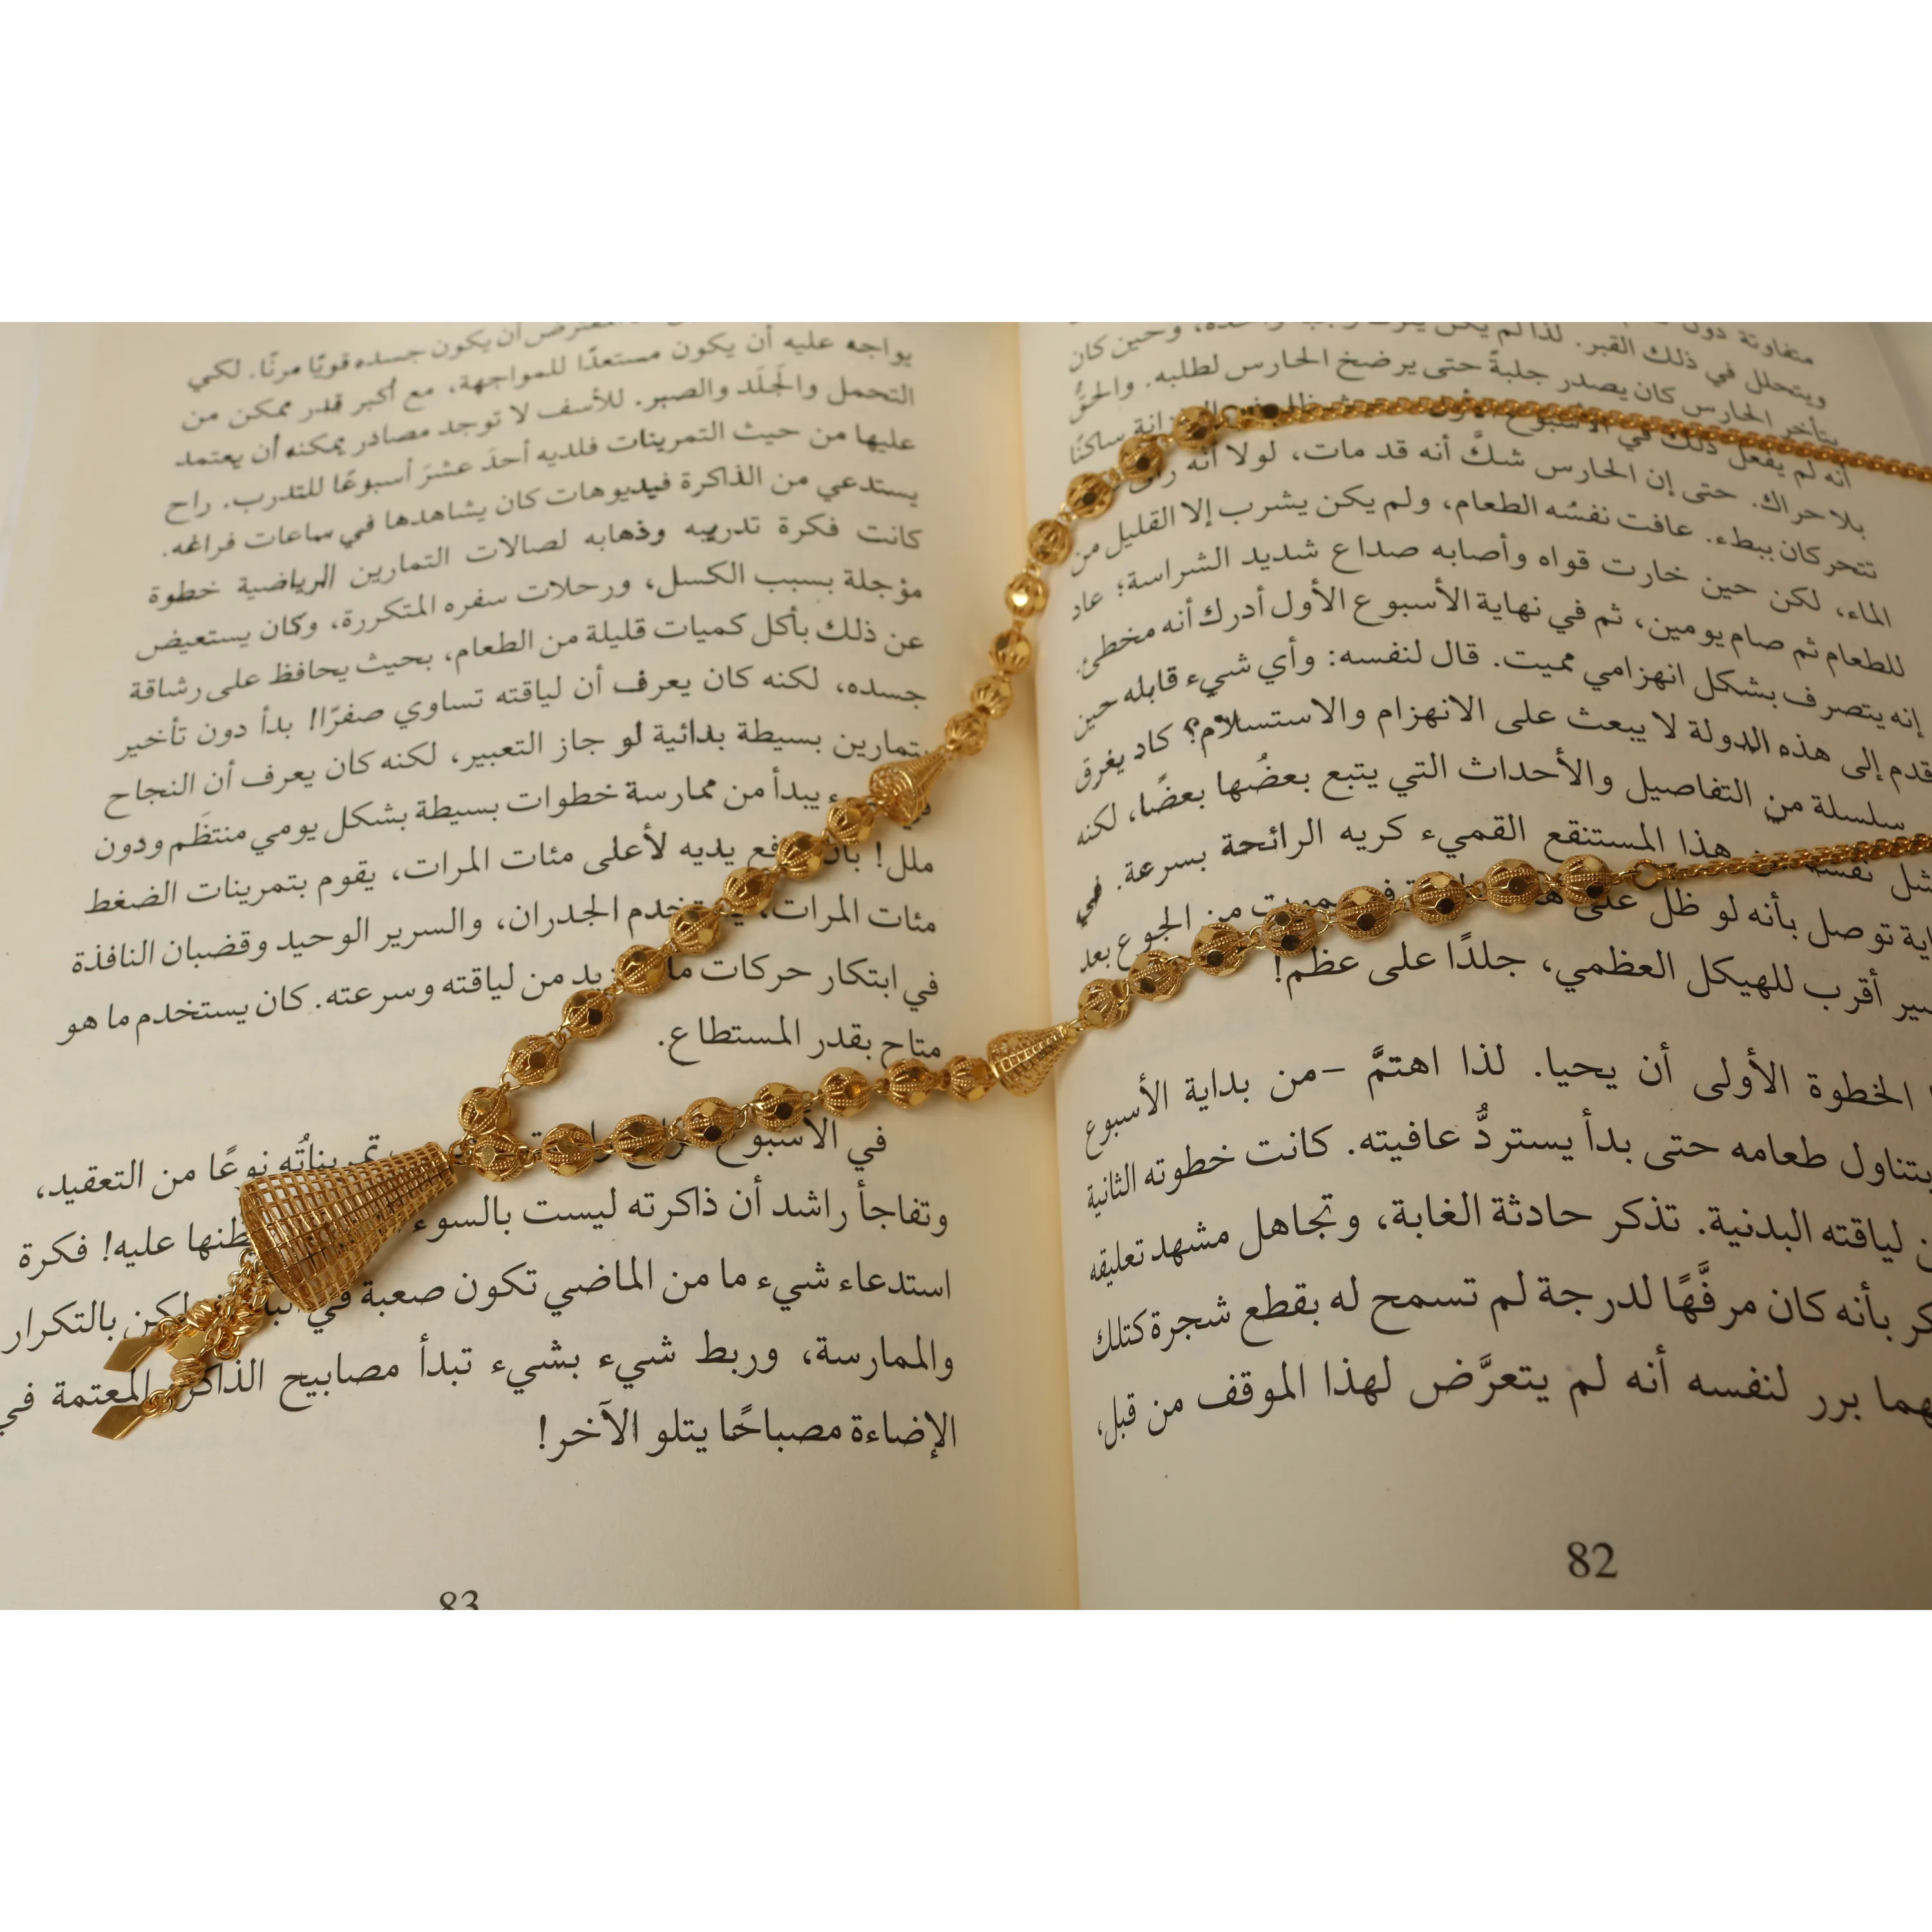 متفاوتة دون
ويتحلل في ذلك القبر. لذا لم يكن يترك وجبة واحدة، وحين كان
يتأخر الحارس كان يصدر جلبةً حتى يرضخ الحارس لطلبه. والحقُّ
أنه لم يفعل ذلك في الأسبوع الزنزانة ساكنًا
بلا حراك. حتى إن الحارس شكَّ أنه قد مات، لولا أنه رأى
تتحركان ببطء. عافت نفسُه الطعام، ولم يكن يشرب إلا القليل من
الماء، لكن حين خارت قواه وأصابه صداع شديد الشراسة؛ عاد
للطعام ثم صام يومين، ثم في نهاية الأسبوع الأول أدرك أنه مخطئ.
إنه يتصرف بشكل انهزامي مميت. قال لنفسه: وأي شيء قابله حين
قدم إلى هذه الدولة لا يبعث على الانهزام والاستسلام؟ كاد يغرق
سلسلة من التفاصيل والأحداث التي يتبع بعضُها بعضًا، لكنه
نفسه من هذا المستنقع القميء كريه الرائحة بسرعة. في
توصل بأنه لو ظل على من الجوع بعد
أقرب للهيكل العظمي، جلدًا على عظم!
الخطوة الأولى أن يحيا. لذا اهتمَّ –من بداية الأسبوع
يتناول طعامه حتى بدأ يستردُّ عافيته. كانت خطوته الثانية
لياقته البدنية. تذكر حادثة الغابة، وتجاهل مشهد تعليقه
بأنه كان مرفَّهًا لدرجة لم تسمح له بقطع شجرة كتلك
برر لنفسه أنه لم يتعرَّض لهذا الموقف من قبل،
82
أن يكون جسده قويًا مرنًا. لكي
يواجه عليه أن يكون مستعدًا للمواجهة، مع أكبر قدر ممكن من
التحمل والجَلَد والصبر. للأسف لا توجد مصادر يمكنه أن يعتمد
عليها من حيث التمرينات فلديه أحدَ عشرَ أسبوعًا للتدرب. راح
يستدعي من الذاكرة فيديوهات كان يشاهدها في ساعات فراغه.
كانت فكرة تدريبه وذهابه لصالات التمارين الرياضية خطوة
مؤجلة بسبب الكسل، ورحلات سفره المتكررة، وكان يستعيض
عن ذلك بأكل كميات قليلة من الطعام، بحيث يحافظ على رشاقة
جسده، لكنه كان يعرف أن لياقته تساوي صفرًا! بدأ دون تأخير
بتمارين بسيطة بدائية لو جاز التعبير، لكنه كان يعرف أن النجاح
يبدأ من ممارسة خطوات بسيطة بشكل يومي منتظَم ودون
ملل! يديه لأعلى مئات المرات، يقوم بتمرينات الضغط
مئات المرات، يستخدم الجدران، والسرير الوحيد وقضبان النافذة
في ابتكار حركات من لياقته وسرعته. كان يستخدم ما هو
متاح بقدر المستطاع.
في الأسبوع تمريناتُه نوعًا من التعقيد،
وتفاجأ راشد أن ذاكرته ليست بالسوء عليه! فكرة
استدعاء شيء ما من الماضي تكون صعبة في لكن بالتكرار
والممارسة، وربط شيء بشيء تبدأ مصابيح الذاكرة المعتمة في
الإضاءة مصباحًا يتلو الآخر!
83